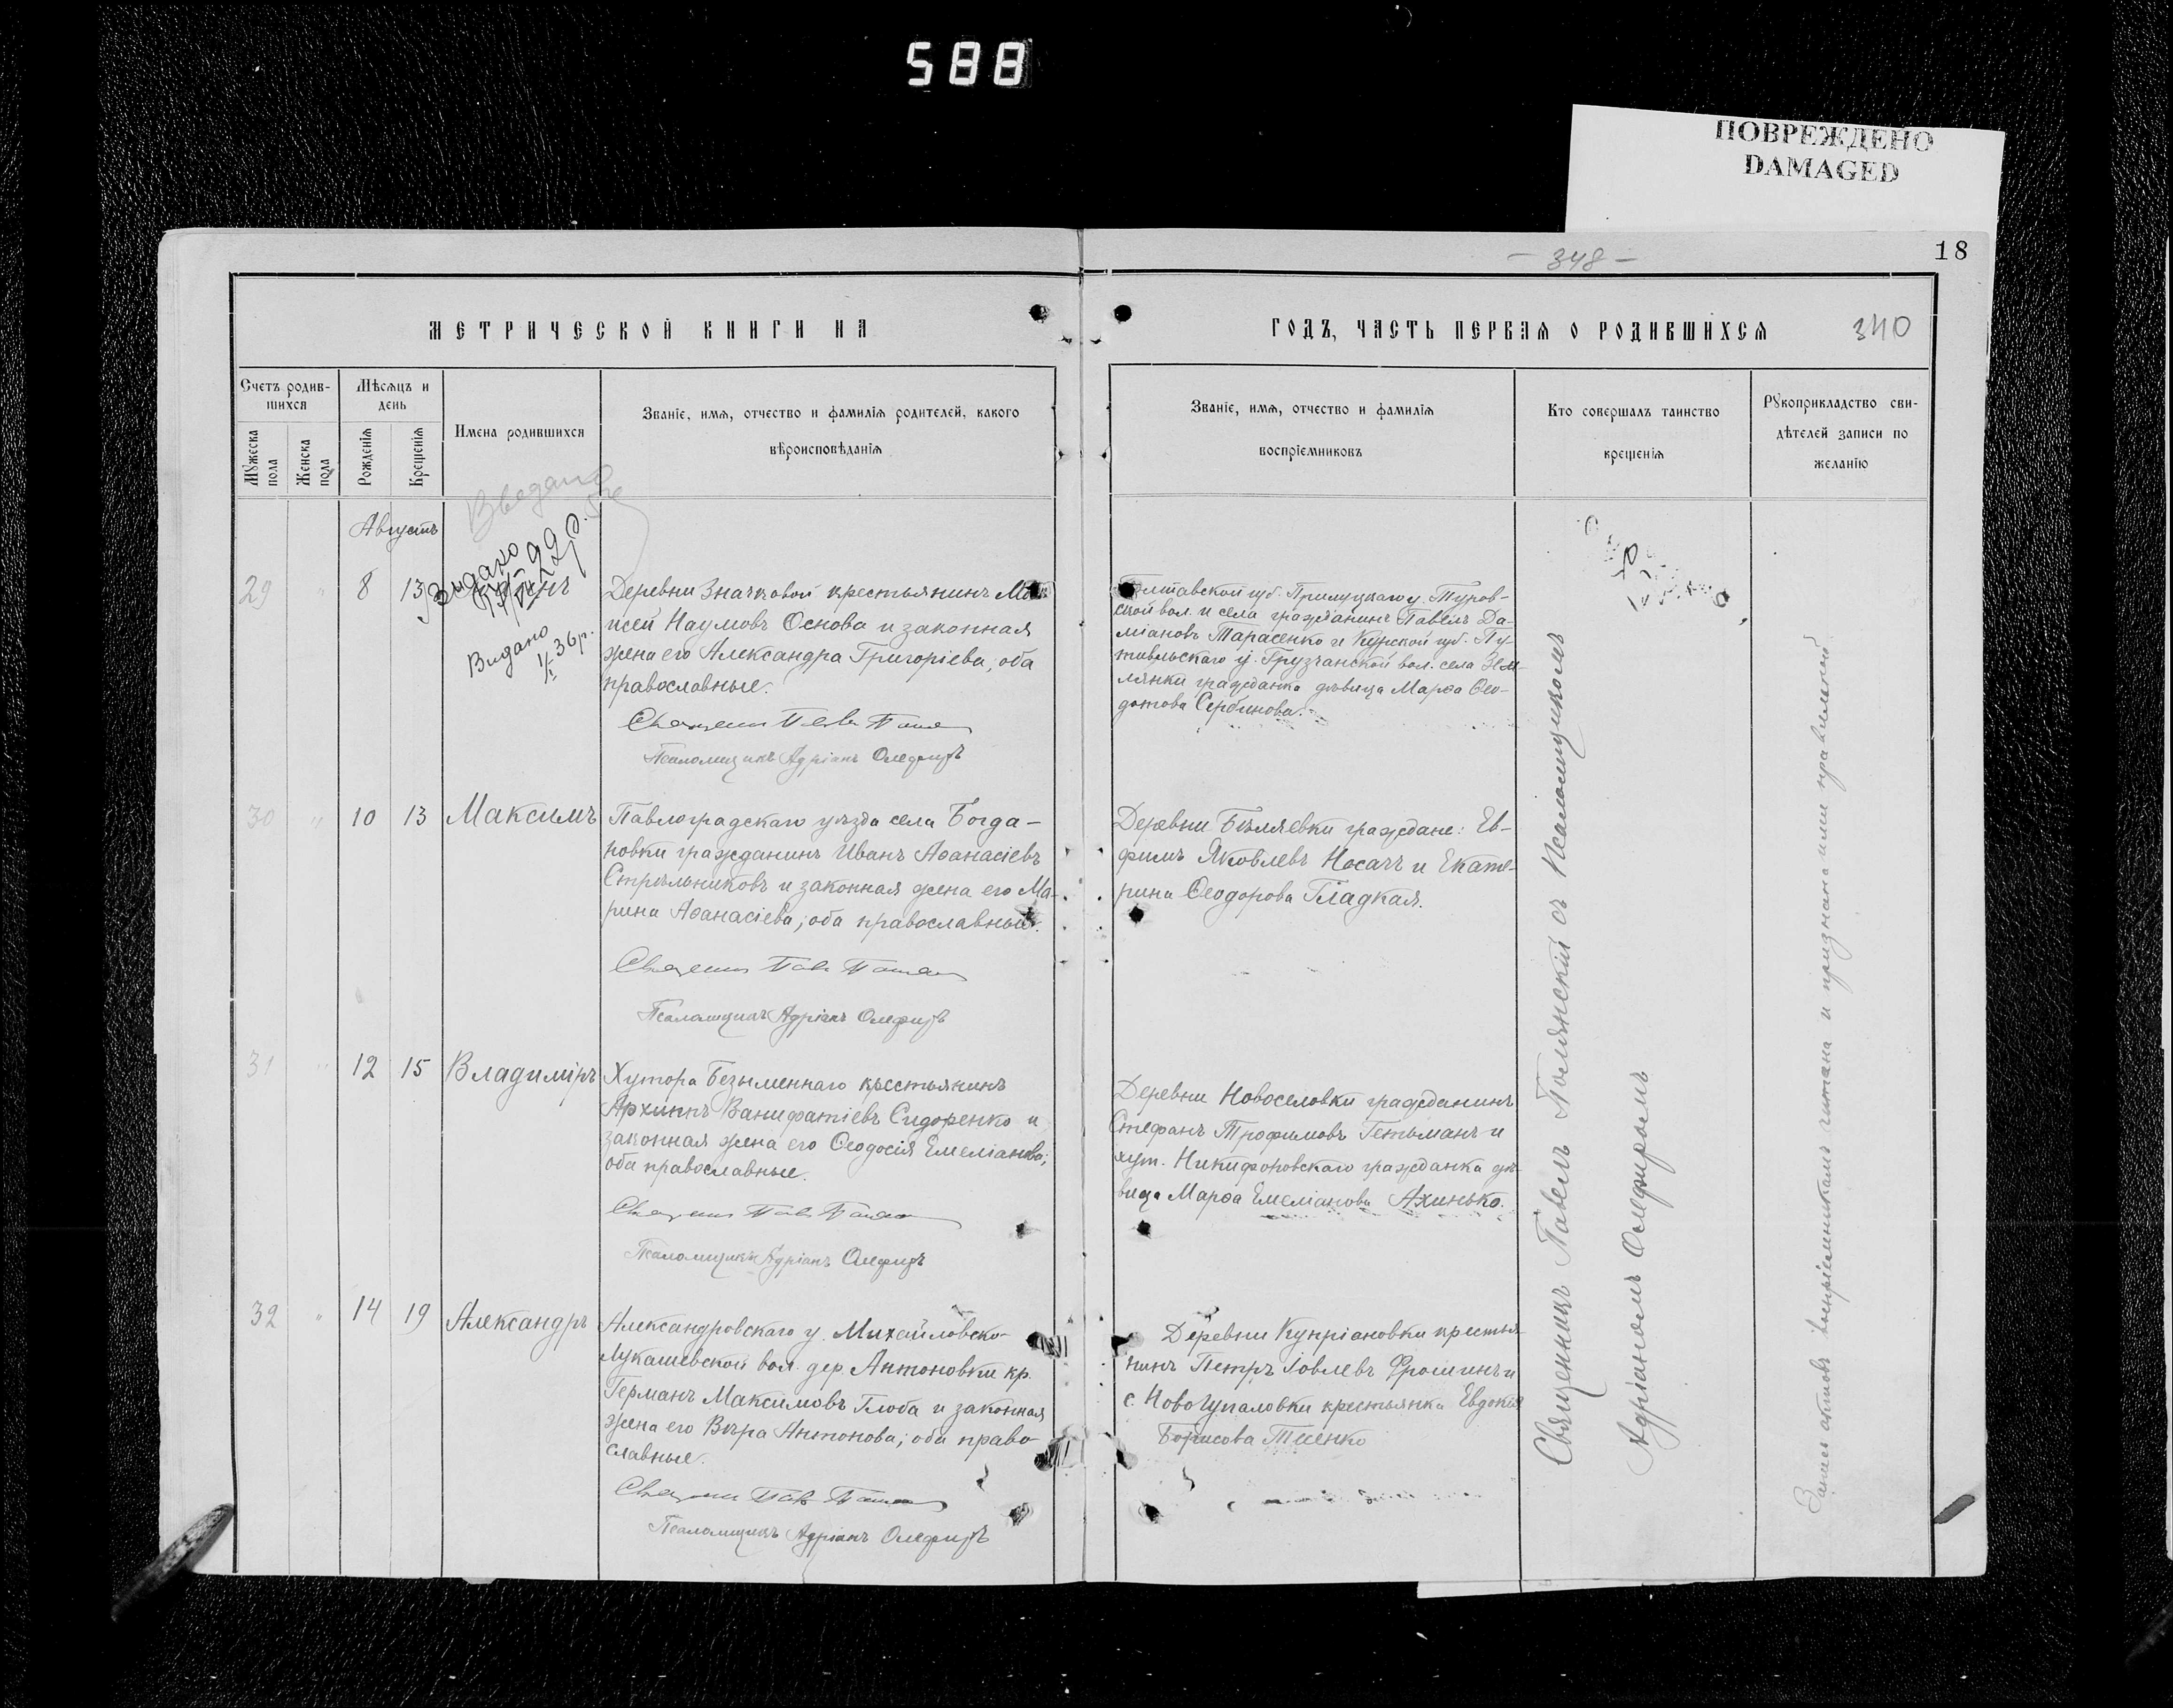 588
ПОВРЕЖДЕНО
DAMAGED
18
— 348 —
340
МЕТРИЧЕСКОЙ КНИГИ НА
ГОДЪ, ЧАСТЬ ПЕРВАЯ О РОДИВШИХСЯ
Счетъ родив-
шихся
Мѣсяцъ и
день
Имена родившихся
Званіе, имя, отчество и фамилія родителей, какого
вѣроисповѣданія
Мужеска
пола
Женска
пола
Рожденія
Крещенія
Званіе, имя, отчество и фамилія
воспріемниковъ
Кто совершалъ таинство
крещенія
Рукоприкладство сви-
дѣтелей записи по
желанію
Августъ
Видано
36р.
29 " 8 13
Деревни Значковой крестьянинъ Мо
исей Наумовъ Основа и законная
жена его Александра Григоріева; оба
православные.
Псаломщикъ Адріанъ Олефиръ
Полтавской губ. Прилуцкаго у. Туров-
ской вол. и села гражданинъ Павелъ Да-
міановъ Тарасенко и Курской губ. Пу-
тивльскаго у. Грузчанской вол. села Зем-
лянки гражданка дѣвица Марѳа Ѳео-
дотова Сербинова.
30 " 10 13 Максимъ
Павлоградскаго уѣзда села Богда-
новки гражданинъ Иванъ Аѳанасіевъ
Стрѣльниковъ и законная жена его Ма-
рина Аѳанасіева; оба православные.
Псаломщикъ Адріанъ Олефиръ
Деревни Бѣляевки граждане: Ев-
фимъ Яковлевъ Носачъ и Екате-
рина Ѳеодорова Гладкая.
31 " 12 15 Владиміръ
Хутора Безыменнаго крестьянинъ
АрхиппъВанифатіевъ Сидоренко и
законная жена его Ѳеодосія Емеліанова;
оба православные.
Псаломщикъ Адріанъ Олефиръ
Деревни Новоселовки гражданинъ
Стефанъ Трофимовъ Гетьманъ и
хут. Никифоровскаго гражданка дѣ-
вица Марѳа Емеліанова Ахинько.
32 " 14 19 Александръ
Александровскаго у. Михайловско-
Лукашевской вол. дер. Антоновки кр.
Германъ Максимовъ Глоба и законная
жена его Вѣра Антонова; оба право
славные.
Псаломщикъ Адріанъ Олефиръ
Деревни Купріановки крестья
нинъ Петръ Іовлевъ Фроминъ и
с. Новогупаловки крестьянка Евдокія
Борисова Тиенко
Священникъ Павелъ Полянскій съ Псаломщикомъ
Адріаномъ Олефиромъ
Запись актовъ воспріемникамъ читана и признана ими правильной